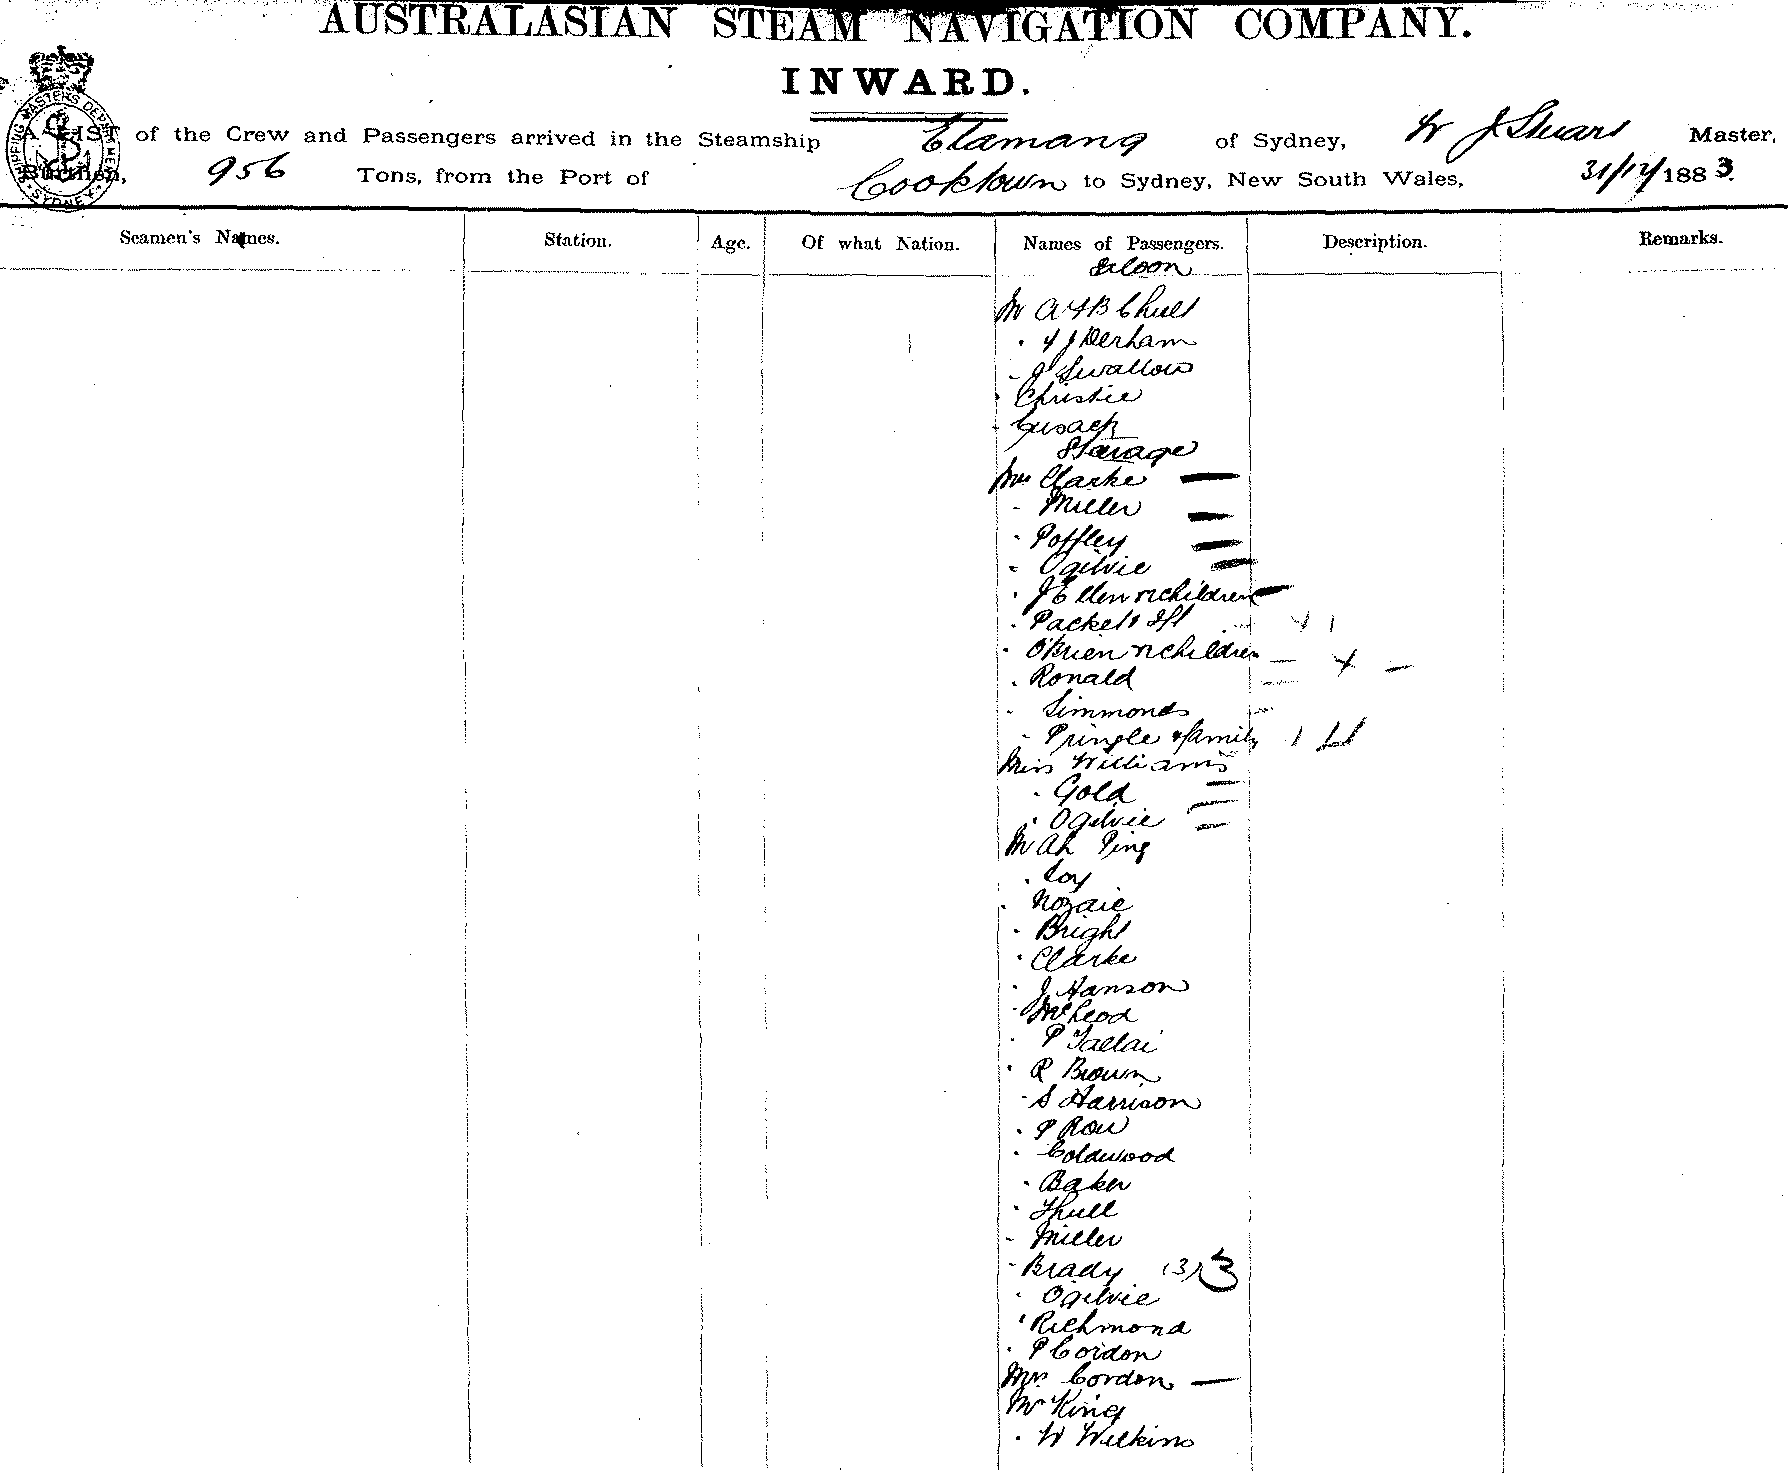 AUSTRALASIAN STEAM NAVIGATION COMPANY.
INWARD.
A LIST of the Crew and Passengers arrived in the Steamship Elamang of Sydney, W J Stuart Master,
Burthen, 956 Tons, from the Port of Cooktown to Sydney, New South Wales, 31/12/1883.
SHIPPING MASTERS DEPARTMENT SYDNEY
Seamen's Names. Station. Age. Of what Nation. Names of Passengers. Description. Remarks.
Saloon
Mr A F B Chull
" F J Derham
" J Swallow
" Christie
" Cusack
Starage
Mrs Clarke
" Miller
" Poffley
" Ogilvie
" J Ellen & children
" Packett
" O'Brien & children
" Ronald
" Simmonds
" Pringle & family
Miss Williams
" Gold
" Ogilvie
Mr Ah Ping
" Loy
" Nozaie
" Bright
" Clarke
" J Hanson
" McLeod
" P Tallai
" R Brown
" S Harrison
" P Row
" Coldwood
" Baker
" Thull
" Miller
" Brady
" Ogilvie
" Richmond
" P Cordon
Mrs Cordon
Mr King
" W Wilkins